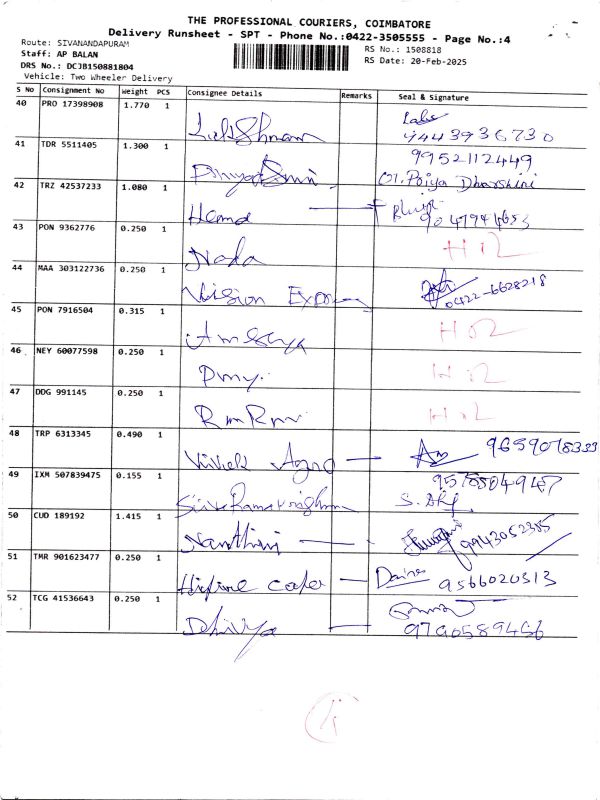 THE PROFESSIONAL COURIERS, COIMBATORE
Delivery Runsheet - SPT - Phone No.:0422-3505555 - Page No.:4
Route: SIVANANDAPURAM
Staff: AP BALAN
DRS No.: DCJB150881804
Vehicle: Two Wheeler Delivery
RS No.: 1508818
RS Date: 20-Feb-2025
S No Consignment No Weight PCS Consignee Details Remarks Seal & Signature
40 PRO 17398908 1.770 1 9443936730
41 TDR 5511405 1.300 1 9952112449
42 TRZ 42537233 1.080 1 Hema 9047944653
43 PON 9362776 0.250 1
44 MAA 303122736 0.250 1 Vision 0422-6628218
45 PON 7916504 0.315 1
46 NEY 60077598 0.250 1
47 DDG 991145 0.250 1
48 TRP 6313345 0.490 1 Vivek Agro 9659078333
49 IXM 507839475 0.155 1
50 CUD 189192 1.415 1 Nanthini 9943052385
51 TMR 901623477 0.250 1 9566020313
52 TCG 41536643 0.250 1 Dhivya 9790589456